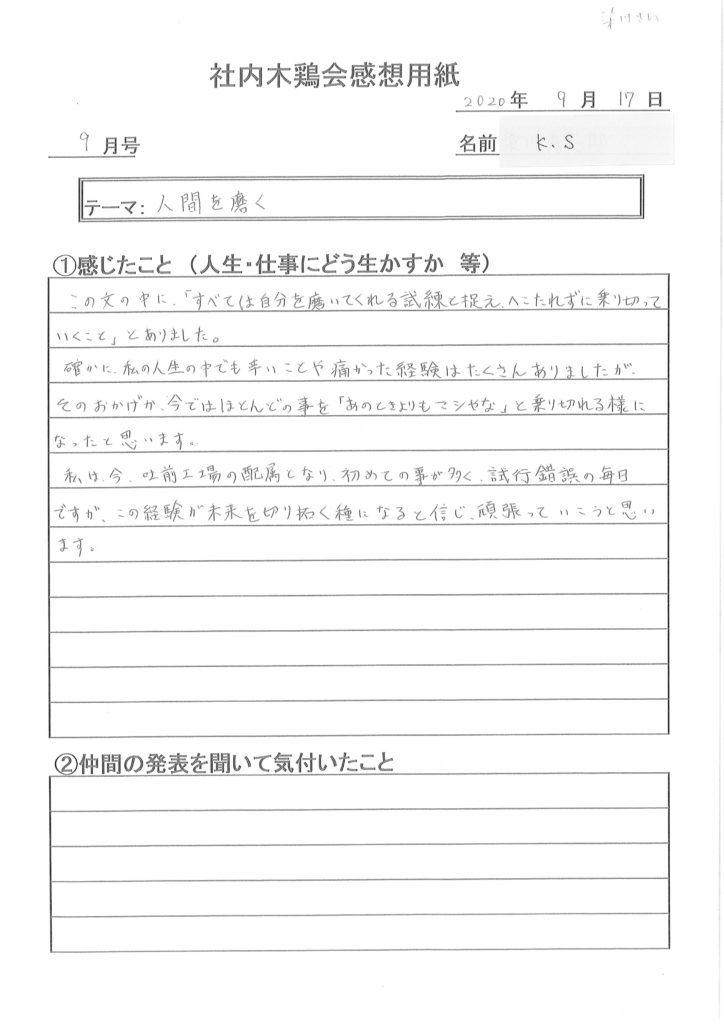 社内木鶏会感想用紙
2020年 9月 17日
9月号
名前 K.S
テーマ: 人間を磨く
①感じたこと (人生・仕事にどう生かすか 等)
この文の中に、「すべては自分を磨いてくれる試練と捉え、へこたれずに乗り切って
いくこと」とありました。
確かに、私の人生の中でも辛いことや痛かった経験はたくさんありましたが、
そのおかげか、今ではほとんどの事を「あのときよりもマシやな」と乗り切れる様に
なったと思います。
私は、今、吐前工場の配属となり、初めての事が多く、試行錯誤の毎日
ですが、この経験が未来を切り拓く種になると信じ、頑張っていこうと思い
ます。
②仲間の発表を聞いて気付いたこと